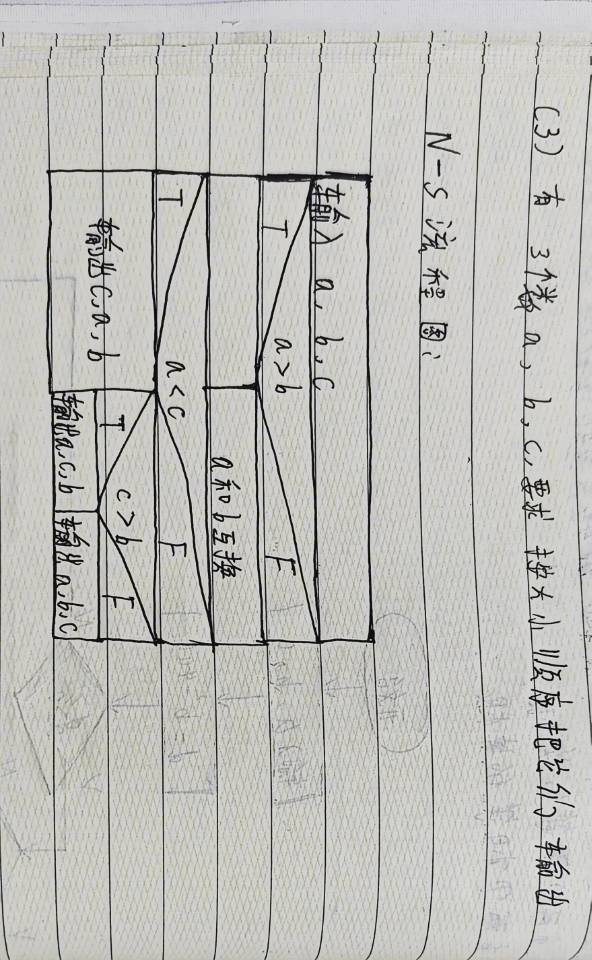 (3) 有 3个数 a, b, c, 要求 按大小顺序把它们输出
N-S 流程图:
输入 a, b, c
T a>b F
a和b互换
T a<c F
输出c,a,b
T c>b F
输出a,c,b 输出a,b,c